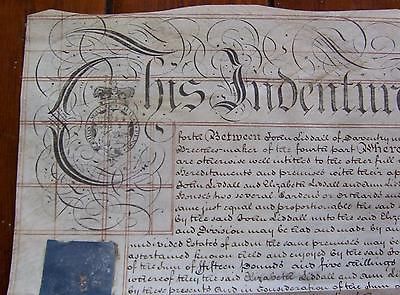 This Indenture
forth Between John Liddall of Daventry
Breeches-maker of the fourth part Where
are otherwise well entitled to the other full
Hereditaments and premises with their
John Liddall and Elizabeth Liddall and Ann
Houses two several Gardens or Orchards and
and of equal and proportionable
by the said John Liddall unto the said Eliza
and Division may be had and made by an
undivided Estates of and in the same premises may be
ascertained known held and enjoyed by the said
of the Sum of Fifteen Pounds and five shillings
whereof they the said Elizabeth Liddall and Ann
by these presents And in Consideration of the Sum